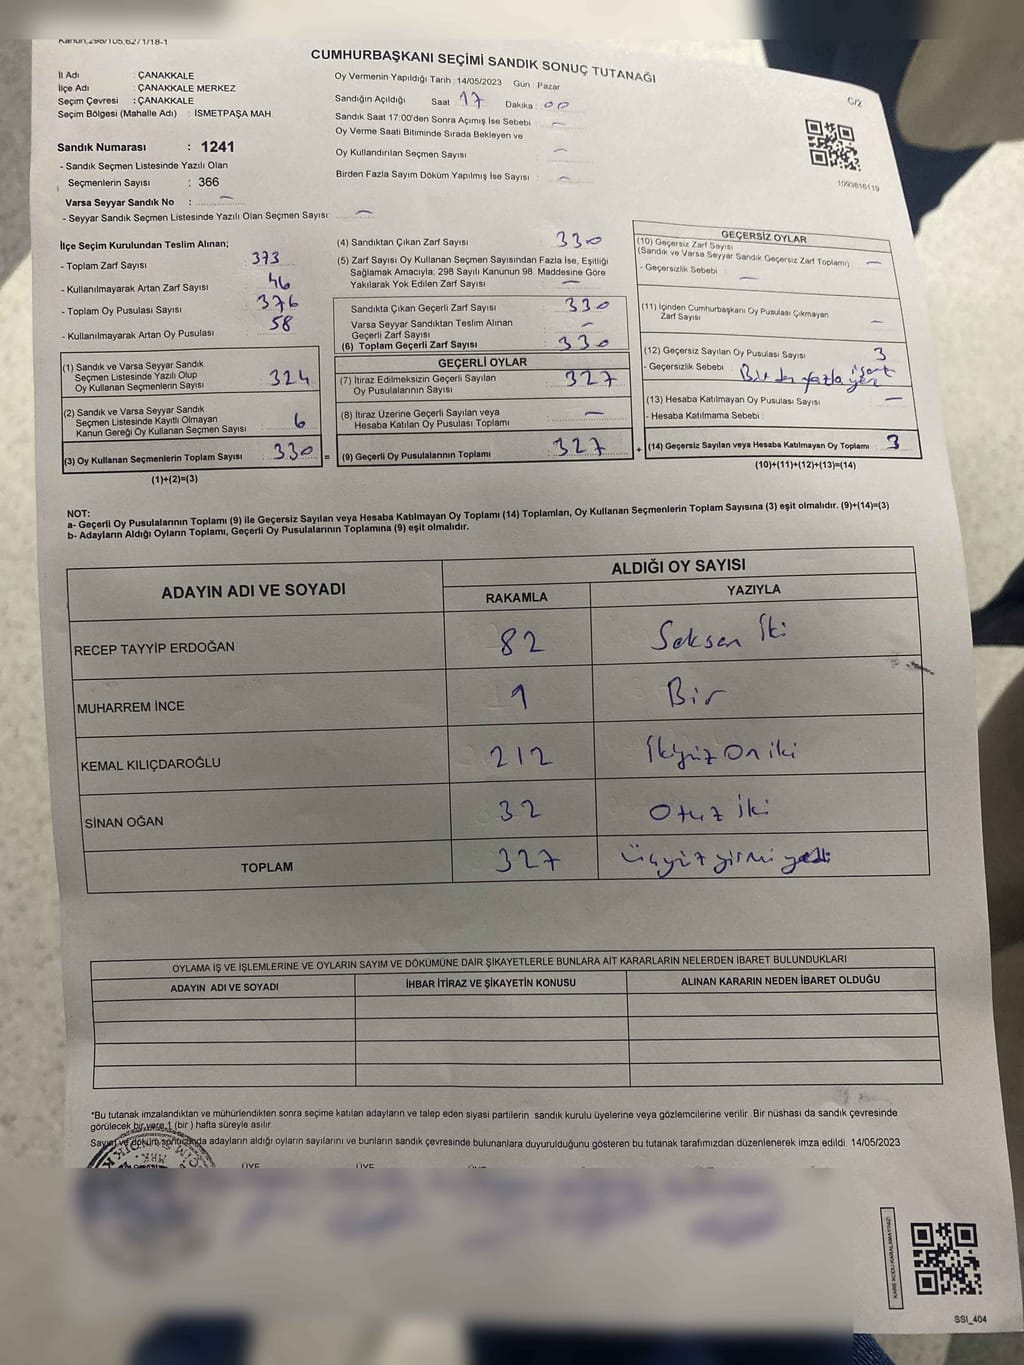 Kanun,298/105,6271/18-1
CUMHURBAŞKANI SEÇİMİ SANDIK SONUÇ TUTANAĞI
C/2
İl Adı : ÇANAKKALE
İlçe Adı : ÇANAKKALE MERKEZ
Seçim Çevresi : ÇANAKKALE
Seçim Bölgesi (Mahalle Adı) : İSMETPAŞA MAH
Sandık Numarası : 1241
- Sandık Seçmen Listesinde Yazılı Olan
Seçmenlerin Sayısı : 366
Varsa Seyyar Sandık No : —
- Seyyar Sandık Seçmen Listesinde Yazılı Olan Seçmen Sayısı: —
Oy Vermenin Yapıldığı Tarih :14/05/2023 Gün : Pazar
Sandığın Açıldığı Saat : 17 Dakika : 00
Sandık Saat 17:00'den Sonra Açımış İse Sebebi : —
Oy Verme Saati Bitiminde Sırada Bekleyen ve
Oy Kullandırılan Seçmen Sayısı : —
Birden Fazla Sayım Döküm Yapılmış İse Sayısı : —
1093816119
İlçe Seçim Kurulundan Teslim Alınan;
- Toplam Zarf Sayısı : 373
- Kullanılmayarak Artan Zarf Sayısı : 46
- Toplam Oy Pusulası Sayısı : 376
- Kullanılmayarak Artan Oy Pusulası : 58
(1) Sandık ve Varsa Seyyar Sandık
Seçmen Listesinde Yazılı Olup
Oy Kullanan Seçmenlerin Sayısı : 324
(2) Sandık ve Varsa Seyyar Sandık
Seçmen Listesinde Kayıtlı Olmayan
Kanun Gereği Oy Kullanan Seçmen Sayısı : 6
(3) Oy Kullanan Seçmenlerin Toplam Sayısı : 330 =
(1)+(2)=(3)
(4) Sandıktan Çıkan Zarf Sayısı : 330
(5) Zarf Sayısı Oy Kullanan Seçmen Sayısından Fazla İse, Eşitliği
Sağlamak Amacıyla; 298 Sayılı Kanunun 98. Maddesine Göre
Yakılarak Yok Edilen Zarf Sayısı : —
Sandıkta Çıkan Geçerli Zarf Sayısı : 330
Varsa Seyyar Sandıktan Teslim Alınan
Geçerli Zarf Sayısı : —
(6) Toplam Geçerli Zarf Sayısı : 330
GEÇERLİ OYLAR
(7) İtiraz Edilmeksizin Geçerli Sayılan
Oy Pusulasının Sayısı : 327
(8) İtiraz Üzerine Geçerli Sayılan veya
Hesaba Katılan Oy Pusulası Toplamı : —
(9) Geçerli Oy Pusulalarının Toplamı : 327 +
GEÇERSİZ OYLAR
(10) Geçersiz Zarf Sayısı
(Sandık ve Varsa Seyyar Sandık Geçersiz Zarf Toplamı) : —
- Geçersizlik Sebebi : —
(11) İçinden Cumhurbaşkanı Oy Pusulası Çıkmayan
Zarf Sayısı : —
(12) Geçersiz Sayılan Oy Pusulası Sayısı : 3
- Geçersizlik Sebebi : Birden fazla yere işaret
(13) Hesaba Katılmayan Oy Pusulası Sayısı : —
- Hesaba Katılmama Sebebi :
(14) Geçersiz Sayılan veya Hesaba Katılmayan Oy Toplamı : 3
(10)+(11)+(12)+(13)=(14)
NOT:
a- Geçerli Oy Pusulalarının Toplamı (9) ile Geçersiz Sayılan veya Hesaba Katılmayan Oy Toplamı (14) Toplamları, Oy Kullanan Seçmenlerin Toplam Sayısına (3) eşit olmalıdır. (9)+(14)=(3)
b- Adayların Aldığı Oyların Toplamı, Geçerli Oy Pusulalarının Toplamına (9) eşit olmalıdır.
ADAYIN ADI VE SOYADI ALDIĞI OY SAYISI
RAKAMLA YAZIYLA
RECEP TAYYİP ERDOĞAN 82 Seksen İki
MUHARREM İNCE 1 Bir
KEMAL KILIÇDAROĞLU 212 İkiyüz On iki
SİNAN OĞAN 32 Otuz iki
TOPLAM 327 Üçyüz yirmi yedi
OYLAMA İŞ VE İŞLEMLERİNE VE OYLARIN SAYIM VE DÖKÜMÜNE DAİR ŞİKAYETLERLE BUNLARA AİT KARARLARIN NELERDEN İBARET BULUNDUKLARI
ADAYIN ADI VE SOYADI İHBAR İTİRAZ VE ŞİKAYETİN KONUSU ALINAN KARARIN NEDEN İBARET OLDUĞU
*Bu tutanak imzalandıktan ve mühürlendikten sonra seçime katılan adayların ve talep eden siyasi partilerin sandık kurulu üyelerine veya gözlemcilerine verilir. Bir nüshası da sandık çevresinde
görülecek bir yere 1 (bir) hafta süreyle asılır.
Sayım ve döküm sonucunda adayların aldığı oyların sayılarını ve bunların sandık çevresinde bulunanlara duyurulduğunu gösteren bu tutanak tarafımızdan düzenlenerek imza edildi. 14/05/2023
ÜYE ÜYE
KARE KODU KARALAMAYINIZ!
SSI_404